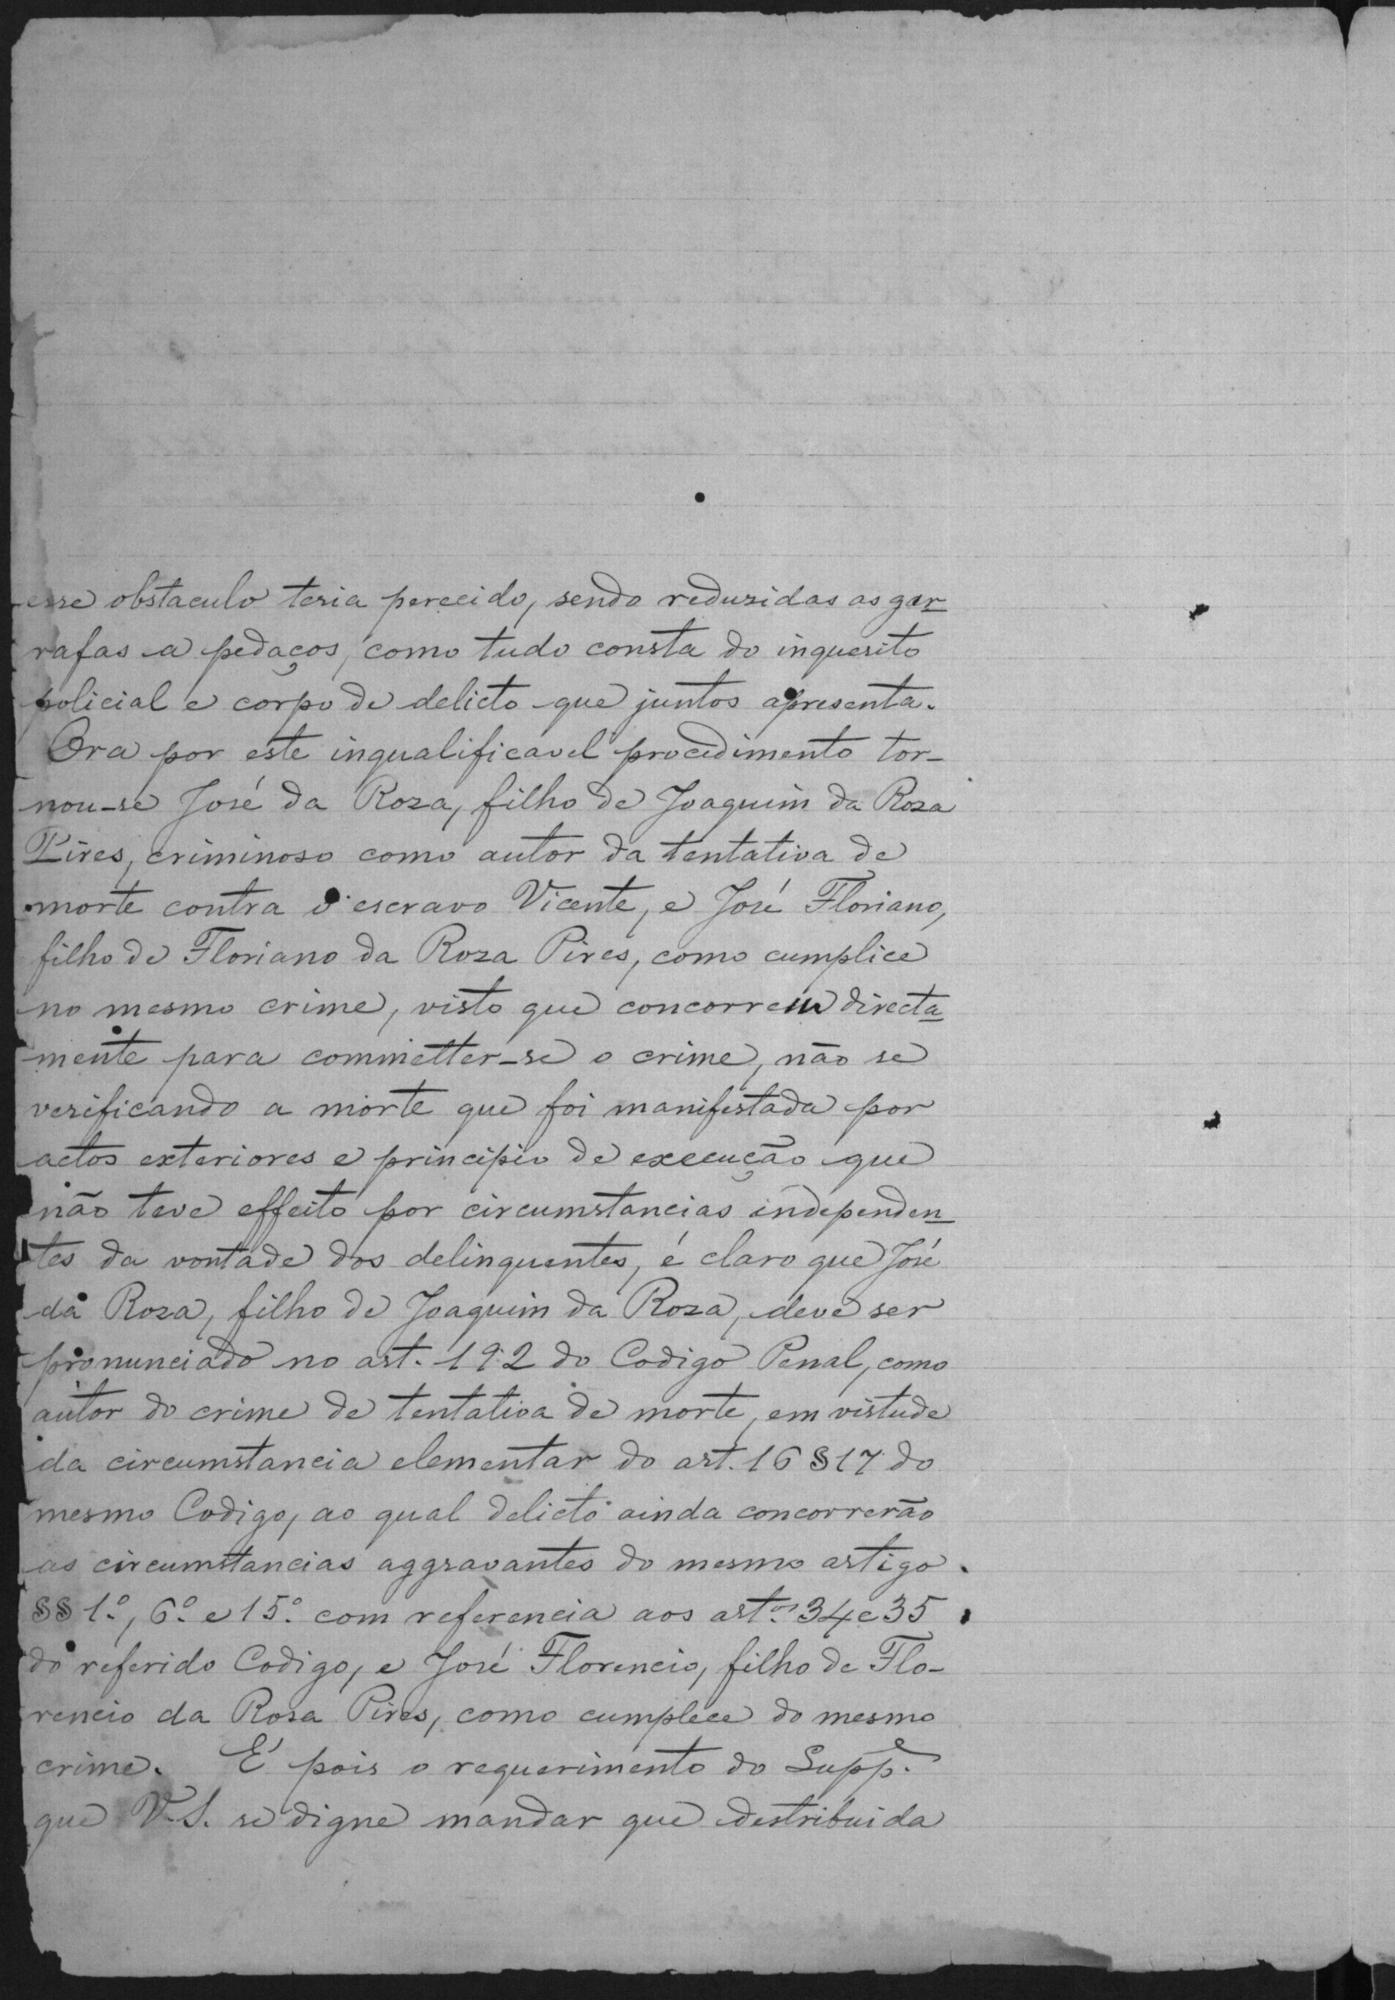 esse obstaculo teria perecido, sendo reduzidas as gar-
rafas a pedaços, como tudo consta do inquerito
policial e corpo de delicto que juntos apresenta.
Ora por este inqualificavel procedimento tor-
nou-se José da Roza, filho de Joaquim da Roza
Pires, criminoso como autor da tentativa de
morte contra o escravo Vicente, e José Floriano,
filho de Floriano da Roza Pires, como cumplice
no mesmo crime, visto que concorreu directa-
mente para commetter-se o crime, não se
verificando a morte que foi manifestada por
actos exteriores e principio de execução que
não teve effeito por circumstancias independen-
tes da vontade dos delinquentes, é claro que José
da Roza, filho de Joaquim da Roza, deve ser
pronunciado no art. 192 do Codigo Penal, como
autor do crime de tentativa de morte, em virtude
da circumstancia elementar do art. 16 § 17 do
mesmo Codigo, ao qual delicto ainda concorrerão
as circumstancias aggravantes do mesmo artigo
§§ 1º, 6º e 15º com referencia aos art.os 34 e 35
do referido Codigo, e José Florencio, filho de Flo-
rencio da Rosa Pires, como cumplece do mesmo
crime. É pois o requerimento do Supp.e
que V.S. se digne mandar que destribuida